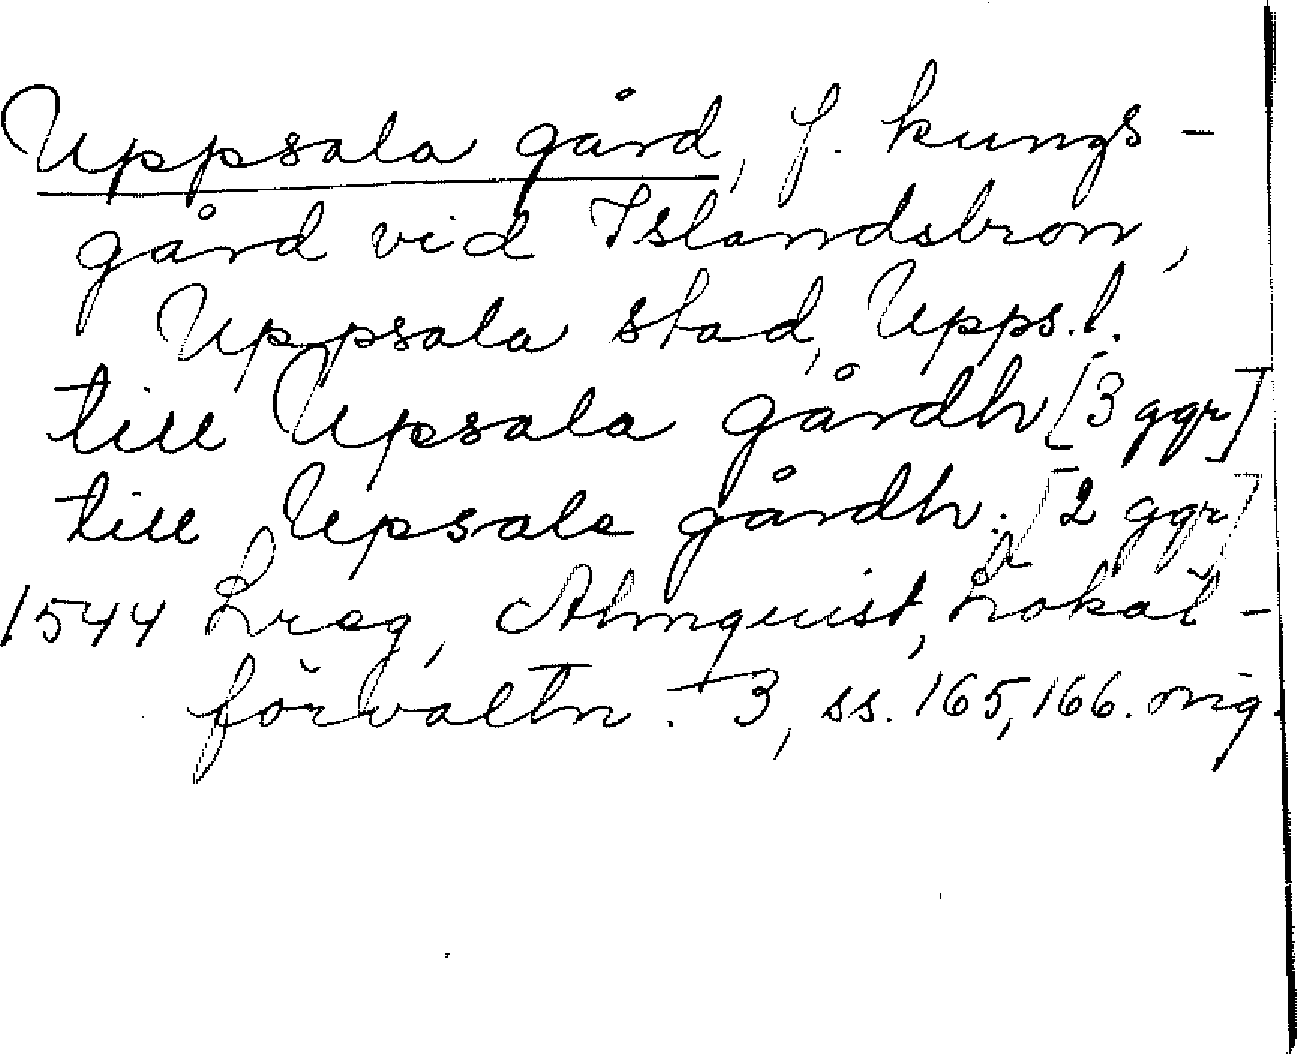 Uppsala gård, f. kungs-
gård vid Islandsbron,
Uppsala stad, Upps. l.
till Upsala gårdh [3 ggr]
till Upsale gårdh. [2 ggr]
1544 Lreg, Almquist, Lokal-
förvaltn. 3, ss. 165, 166. orig.